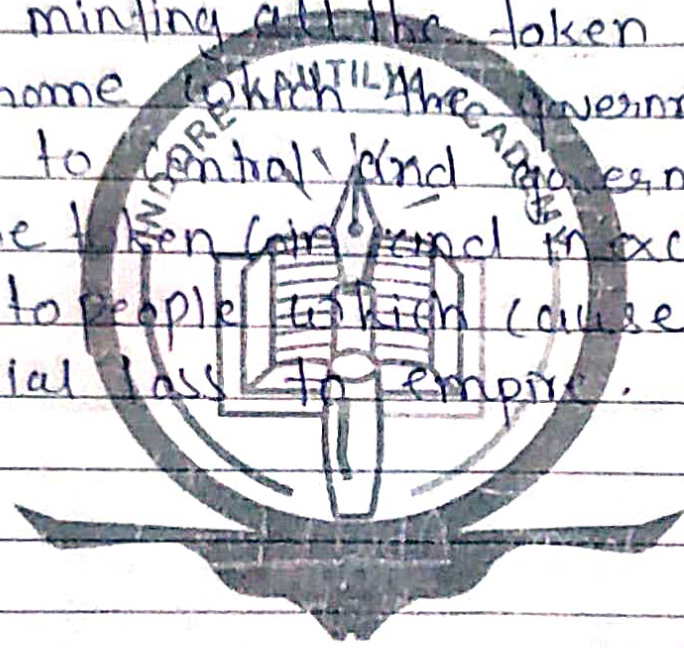 minting all the token
home which the governm
to Central and govern
e token coin and in exc
to people which cause
ial loss to empire.
INDORE KAUTILYA ACADEMY